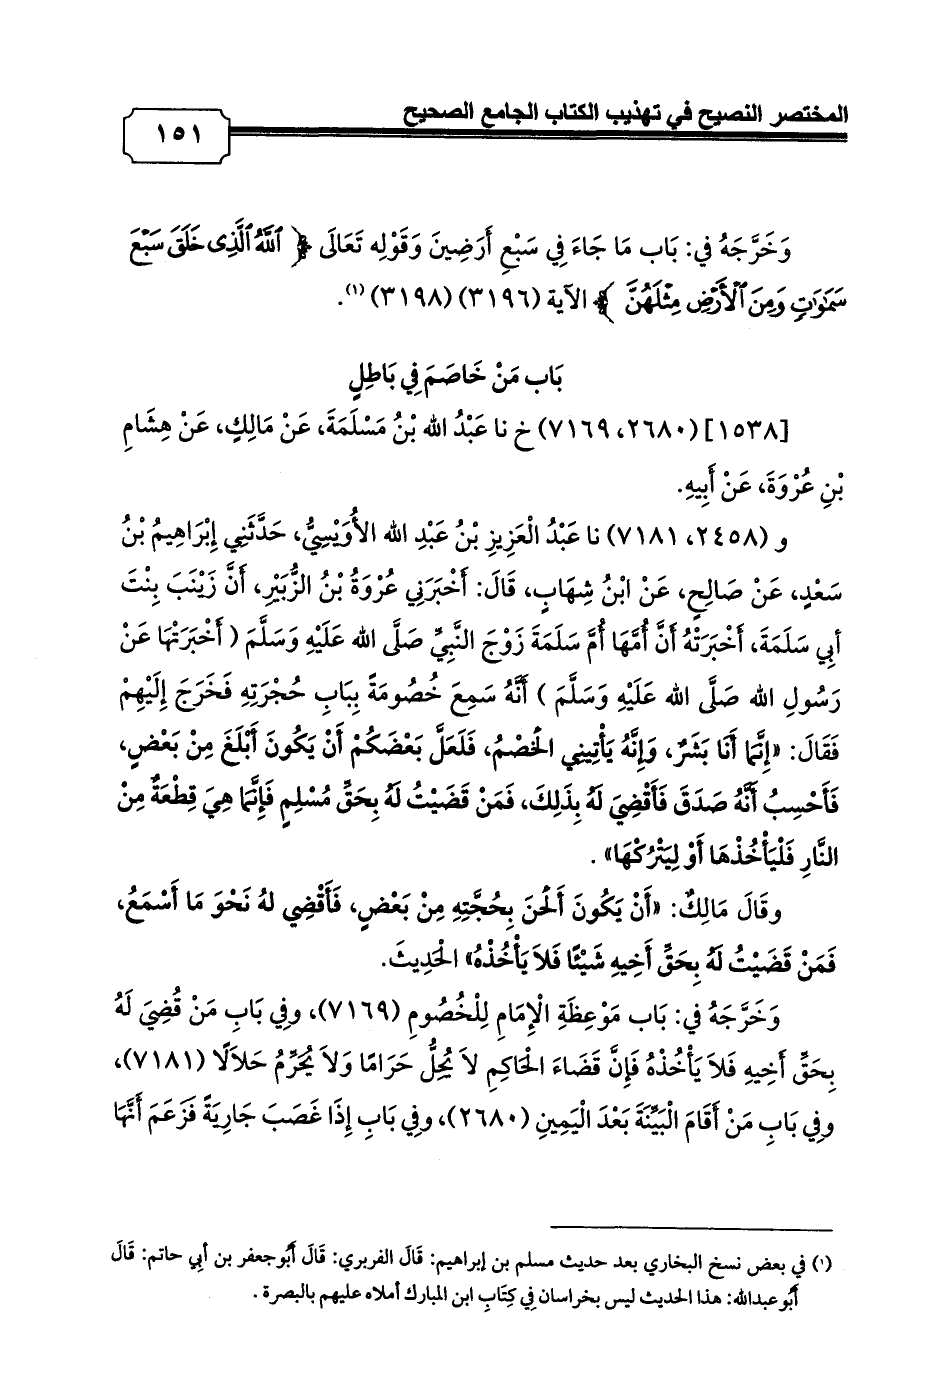 المختصر النصيح في تهذيب الكتاب الجامع الصحيح
١٥١
وَخَرَّجَهُ فِي: بَاب مَا جَاءَ فِي سَبْعِ أَرَضِينَ وَقَوْلِه تَعَالَى ﴿ ٱللَّهُ ٱلَّذِى خَلَقَ سَبْعَ
سَمَٰوَٰتٍ وَمِنَ ٱلْأَرْضِ مِثْلَهُنَّ ﴾ الآية (٣١٩٦) (٣١٩٨) (١).
بَاب مَنْ خَاصَمَ فِي بَاطِلٍ
[١٥٣٨] (٢٦٨٠، ٧١٦٩) خ نا عَبْدُ الله بْنُ مَسْلَمَةَ، عَنْ مَالِكٍ، عَنْ هِشَامِ
بْنِ عُرْوَةَ، عَنْ أَبِيهِ.
و (٢٤٥٨، ٧١٨١) نا عَبْدُ الْعَزِيزِ بْنُ عَبْدِ الله الأُوَيْسِيُّ، حَدَّثَنِي إِبْرَاهِيمُ بْنُ
سَعْدٍ، عَنْ صَالِحٍ، عَنْ ابْنُ شِهَابٍ، قَالَ: أَخْبَرَنِي عُرْوَةُ بْنُ الزُّبَيْرِ، أَنَّ زَيْنَبَ بِنْتَ
أبِي سَلَمَةَ، أَخْبَرَتْهُ أَنَّ أُمَّهَا أُمَّ سَلَمَةَ زَوْجَ النَّبِيِّ صَلَّى الله عَلَيْهِ وَسَلَّمَ ( أَخْبَرَتْهَا عَنْ
رَسُولِ الله صَلَّى الله عَلَيْهِ وَسَلَّمَ ) أَنَّهُ سَمِعَ خُصُومَةً بِبَابِ حُجْرَتِهِ فَخَرَجَ إِلَيْهِمْ
فَقَالَ: «إِنَّمَا أَنَا بَشَرٌ، وَإِنَّهُ يَأْتِينِي الْخَصْمُ، فَلَعَلَّ بَعْضَكُمْ أَنْ يَكُونَ أَبْلَغَ مِنْ بَعْضٍ،
فَأَحْسِبُ أَنَّهُ صَدَقَ فَأَقْضِيَ لَهُ بِذَلِكَ، فَمَنْ قَضَيْتُ لَهُ بِحَقِّ مُسْلِمٍ فَإِنَّمَا هِيَ قِطْعَةٌ مِنْ
النَّارِ فَلْيَأْخُذْهَا أَوْ لِيَتْرُكْهَا» .
وقَالَ مَالِكٌ: «أَنْ يَكُونَ أَلْحَنَ بِحُجَّتِهِ مِنْ بَعْضٍ، فَأَقْضِي لهُ نَحْوَ مَا أَسْمَعُ،
فَمَنْ قَضَيْتُ لَهُ بِحَقِّ أَخِيهِ شَيْئًا فَلاَ يَأْخُذْهُ» الْحَدِيثَ.
وَخَرَّجَهُ فِي: بَاب مَوْعِظَةِ الْإِمَامِ لِلْخُصُومِ (٧١٦٩)، وفِي بَابِ مَنْ قُضِيَ لَهُ
بِحَقِّ أَخِيهِ فَلاَ يَأْخُذْهُ فَإِنَّ قَضَاءَ الْحَاكِمِ لاَ يُحِلُّ حَرَامًا وَلاَ يُحَرِّمُ حَلاَلًا (٧١٨١)،
وفِي بَابِ مَنْ أَقَامَ الْبَيِّنَةَ بَعْدَ الْيَمِينِ (٢٦٨٠)، وفِي بَابِ إِذَا غَصَبَ جَارِيَةً فَزَعَمَ أَنَّهَا
(١) في بعض نسخ البخاري بعد حديث مسلم بن إبراهيم: قَالَ الفربري: قَالَ أَبُوجعفر بن أبي حاتم: قَالَ
أَبُو عبدالله: هذا الحديث ليس بخراسان فِي كِتَابِ ابن المبارك أملاه عليهم بالبصرة .